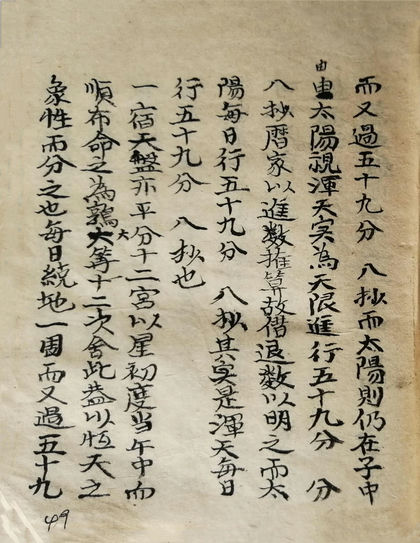 而又過五十九分 八抄而太陽則仍在子中
由
由太陽視渾天実為天限進行五十九分 分
八抄曆家以進数推算故借退数以明之而太
陽每日行五十九分 八抄其奌是渾天每日
行五十九分 八抄也
一宿天盤亦平分十二宮以星初度当午中而
順布命之為鶉大等十二次舍此葢以恆天之
大
象性而分之也每日繞地一周而又過五十九
49